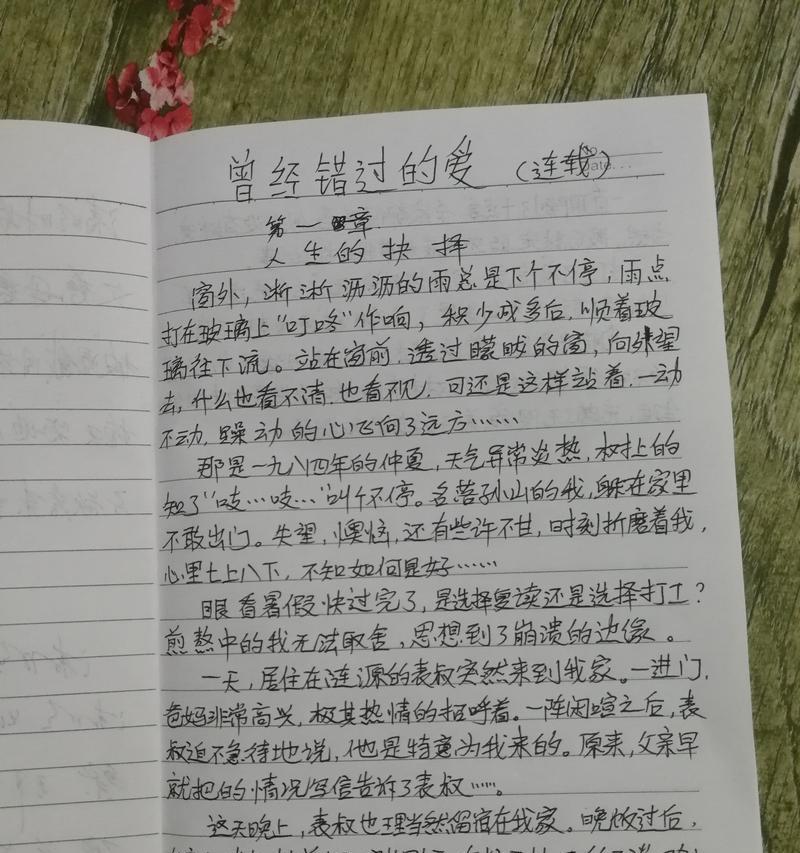 曾经错过的爱 (连载)
第一章
人生的抉择
窗外，淅淅沥沥的雨总是下个不停，雨点
打在玻璃上“叮咚”作响，积少成多后，顺着玻
璃往下流。站在窗前，透过朦胧的窗，向外望
去，什么也看不清，也看不见，可还是这样站着，一动
不动，躁动的心飞向了远方……
那是一九八四年的仲夏，天气异常炎热，树上的
知了“吱…吱…”叫个不停。名落孙山的我，躲在家里
不敢出门。失望，懊恼，还有些许不甘，时刻折磨着我，
心里七上八下，不知如何是好……
眼看暑假快过完了，是选择复读还是选择打工？
煎熬中的我无法取舍，思想到了崩溃的边缘。
一天，居住在涟源的表叔突然来到我家。一进门，
爸妈非常高兴，极其热情的招呼着。一阵闲喧之后，表
叔迫不急待地说，他是特意为我来的。原来，父亲早
就把的情况写信告诉了表叔……。
这天晚上，表叔也理当然留宿在我家。晚饭过后，